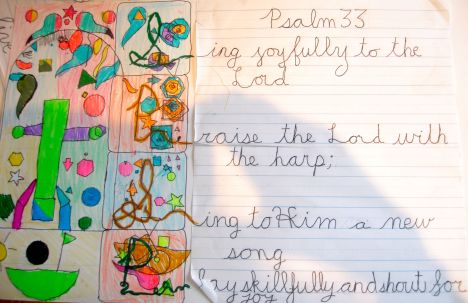 Psalm 33
Sing joyfully to the
Lord
Praise the Lord with
the harp;
Sing to Him a new
song
Play skillfully and shout for
joy